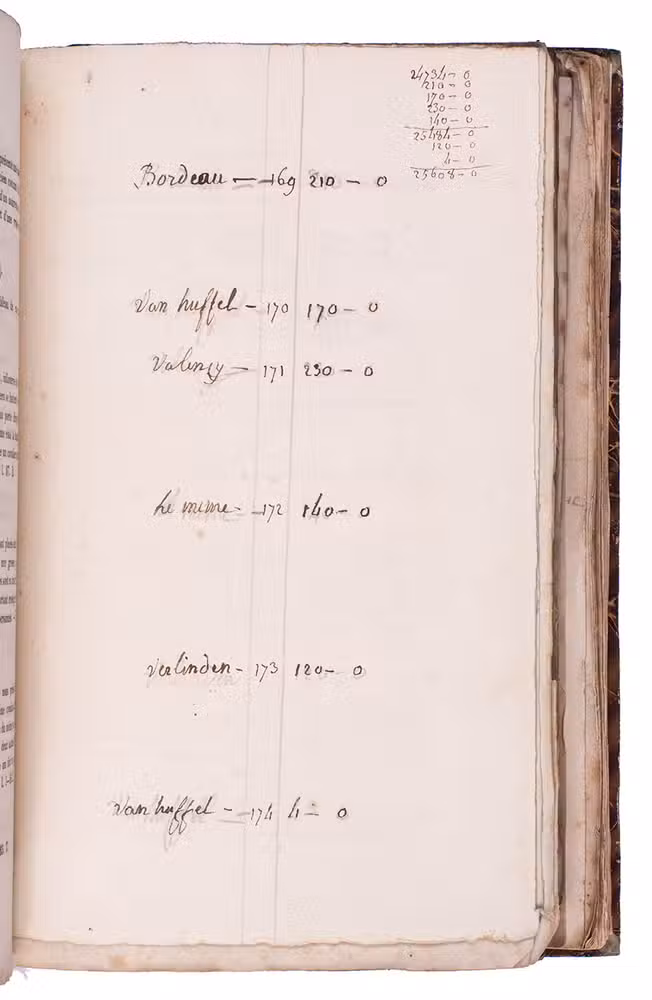 24734 - 0
210 - 0
170 - 0
230 - 0
140 - 0
25484 - 0
120 - 0
4 - 0
25608 - 0
Bordeau — 169 210 - 0
Van huffel - 170 170 - 0
Valency - 171 230 - 0
Le meme - 172 140 - 0
Verlinden - 173 120 - 0
Van huffel - 174 4 - 0